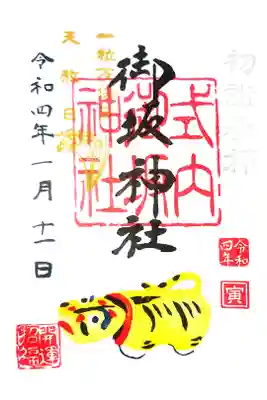 御坂神社
式内
神社
一粒万倍日
天赦日
令和四年一月十一日
令和
四年
寅
開運
招福